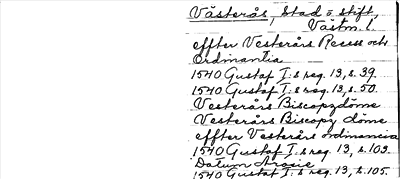 Västerås, stad o. stift,
Västm. l.
effter Vesterårs Recess och
Ordinantia
1540 Gustaf I:s reg. 13, s. 39.
1540 Gustaf I:s reg. 13, s. 50.
Vesterårs Biscopzdöme
Vesterårs Biscopz döme
effter Vesterårs ordinancia
1540 Gustaf I:s reg. 13, s. 103.
Datum Arosie
1540 Gustaf I:s reg. 13, s. 105.